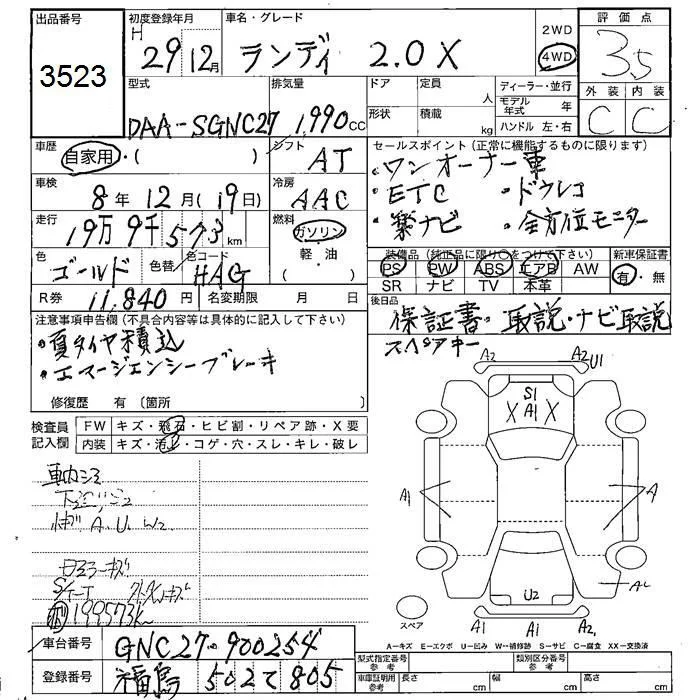 出品番号
3523
初度登録年月
H
29年12月
車名・グレード
ランディ 2.0X
2WD
4WD
評価点
3.5
外装 内装
C C
型式
DAA-SGNC27
排気量
1,990 CC
ドア 定員
人
形状 積載
kg
ディーラー・並行
モデル年式 年
ハンドル 左・右
車歴
自家用・( )
シフト
AT
セールスポイント(正常に機能するものに限ります)
・ワンオーナー車
・ETC ・ドラレコ
・楽ナビ ・全方位モニター
車検
8年12月(19日)
冷房
AAC
走行
19万9千573km
燃料
ガソリン
軽・油
( )
色
ゴールド
色替
色コード
HAG
装備品(純正品に限り○をつけて下さい)
PS PW ABS エアB AW
SR ナビ TV 本革
新車保証書
有・無
R券 11,840円
名変期限 月 日
後日品
保証書・取説・ナビ取説
スペアキー
注意事項申告欄(不具合内容等は具体的に記入して下さい)
・夏タイヤ積込
・エマージェンシーブレーキ
修復歴 有(箇所 )
検査員記入欄
FW キズ・飛石・ヒビ割・リペア跡・X要
内装 キズ・汚れ・コゲ・穴・スレ・キレ・破レ
A.U.W2
199573K
A2 A2 U1
S1
X A1 X
A1
A
A2
U2
A1 A1 A2
スペア
A=キズ E=エクボ U=凹み W=補修跡 S=サビ C=腐食 XX=交換済
車台番号 GNC27-900254
登録番号 福島 502て805
型式指定番号 参考
類別区分番号 参考
車庫証明用 参考
長さ cm
幅 cm
高さ cm